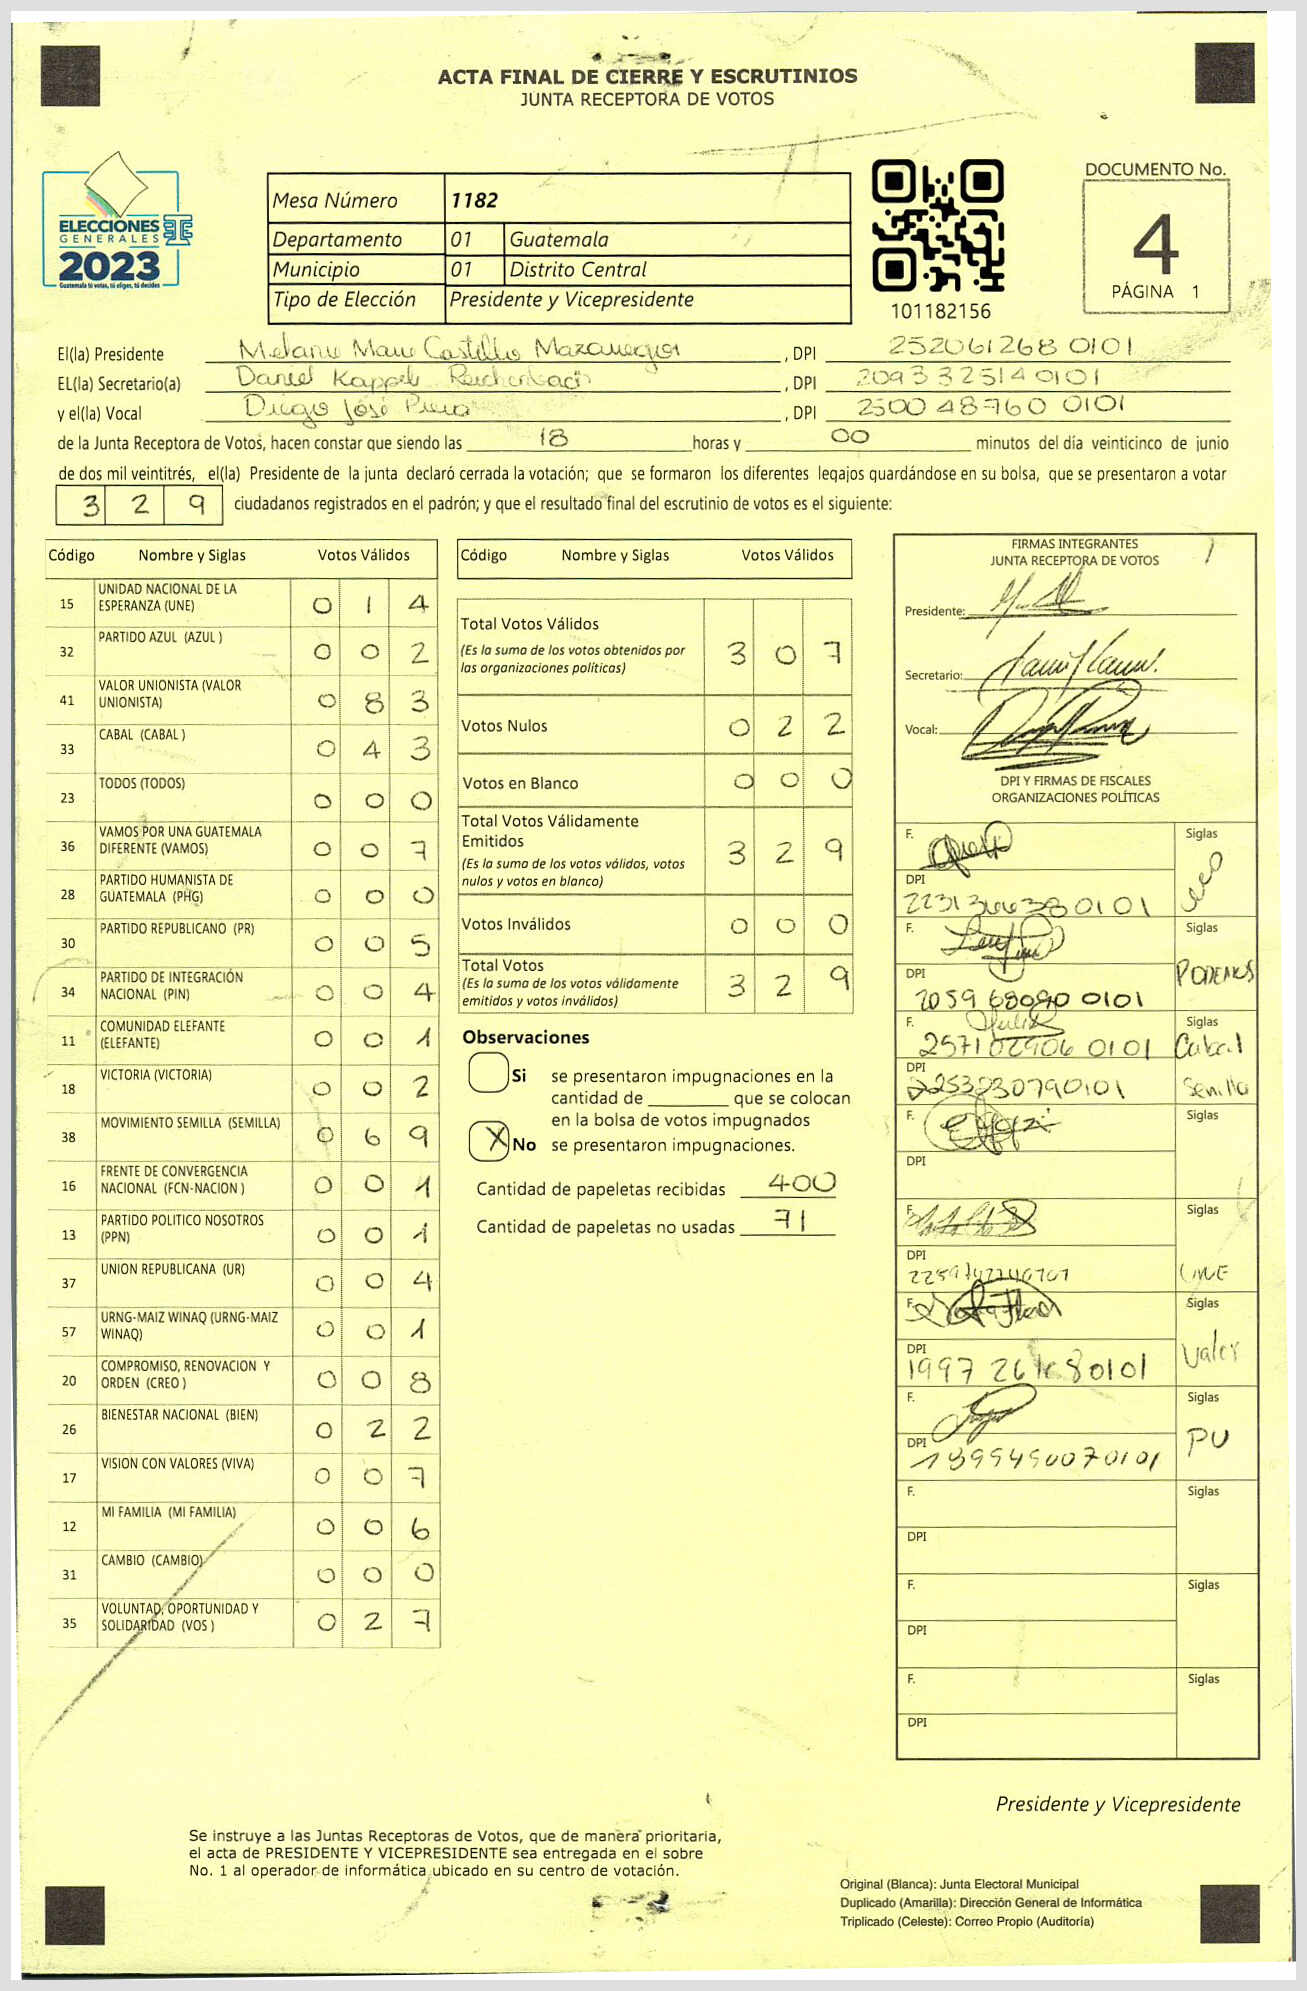 ACTA FINAL DE CIERRE Y ESCRUTINIOS
JUNTA RECEPTORA DE VOTOS
ELECCIONES
GENERALES
2023
Guatemala tú votas, tú eliges, tú decides
Mesa Número 1182
Departamento 01 Guatemala
Municipio 01 Distrito Central
Tipo de Elección Presidente y Vicepresidente
101182156
DOCUMENTO No.
4
PÁGINA 1
El(la) Presidente Melanie Marie Castillo , DPI 252061268 0101
EL(la) Secretario(a) Daniel Kappeli Reichenbach , DPI 209332514 0101
y el(la) Vocal Diego José , DPI 2500 48760 0101
de la Junta Receptora de Votos, hacen constar que siendo las 18 horas y 00 minutos del día veinticinco de junio
de dos mil veintitrés, el(la) Presidente de la junta declaró cerrada la votación; que se formaron los diferentes legajos guardándose en su bolsa, que se presentaron a votar
3 2 9 ciudadanos registrados en el padrón; y que el resultado final del escrutinio de votos es el siguiente:
Código Nombre y Siglas Votos Válidos
15 UNIDAD NACIONAL DE LA ESPERANZA (UNE) 0 1 4
32 PARTIDO AZUL (AZUL ) 0 0 2
41 VALOR UNIONISTA (VALOR UNIONISTA) 0 8 3
33 CABAL (CABAL ) 0 4 3
23 TODOS (TODOS) 0 0 0
36 VAMOS POR UNA GUATEMALA DIFERENTE (VAMOS) 0 0 7
28 PARTIDO HUMANISTA DE GUATEMALA (PHG) 0 0 0
30 PARTIDO REPUBLICANO (PR) 0 0 5
34 PARTIDO DE INTEGRACIÓN NACIONAL (PIN) 0 0 4
11 COMUNIDAD ELEFANTE (ELEFANTE) 0 0 1
18 VICTORIA (VICTORIA) 0 0 2
38 MOVIMIENTO SEMILLA (SEMILLA) 0 6 9
16 FRENTE DE CONVERGENCIA NACIONAL (FCN-NACION ) 0 0 1
13 PARTIDO POLITICO NOSOTROS (PPN) 0 0 1
37 UNION REPUBLICANA (UR) 0 0 4
57 URNG-MAIZ WINAQ (URNG-MAIZ WINAQ) 0 0 1
20 COMPROMISO, RENOVACION Y ORDEN (CREO ) 0 0 8
26 BIENESTAR NACIONAL (BIEN) 0 2 2
17 VISION CON VALORES (VIVA) 0 0 7
12 MI FAMILIA (MI FAMILIA) 0 0 6
31 CAMBIO (CAMBIO) 0 0 0
35 VOLUNTAD, OPORTUNIDAD Y SOLIDARIDAD (VOS ) 0 2 7
Código Nombre y Siglas Votos Válidos
Total Votos Válidos 3 0 7
(Es la suma de los votos obtenidos por
las organizaciones políticas)
Votos Nulos 0 2 2
Votos en Blanco 0 0 0
Total Votos Válidamente
Emitidos 3 2 9
(Es la suma de los votos válidos, votos
nulos y votos en blanco)
Votos Inválidos 0 0 0
Total Votos 3 2 9
(Es la suma de los votos válidamente
emitidos y votos inválidos)
Observaciones
Si se presentaron impugnaciones en la
cantidad de ________ que se colocan
en la bolsa de votos impugnados
X No se presentaron impugnaciones.
Cantidad de papeletas recibidas 400
Cantidad de papeletas no usadas 71
FIRMAS INTEGRANTES
JUNTA RECEPTORA DE VOTOS
Presidente:
Secretario:
Vocal:
DPI Y FIRMAS DE FISCALES
ORGANIZACIONES POLÍTICAS
F. Siglas
DPI
F. Siglas PODEMOS
DPI 2059 68090 0101
F. Siglas Cabal
257102906 0101
DPI 2253230790101 Semilla
F. Siglas
DPI
F. Siglas UNE
DPI
F. Siglas Valor
DPI
F. Siglas PU
DPI 1899490070101
F. Siglas
DPI
F. Siglas
DPI
F. Siglas
DPI
Presidente y Vicepresidente
Se instruye a las Juntas Receptoras de Votos, que de manera prioritaria,
el acta de PRESIDENTE Y VICEPRESIDENTE sea entregada en el sobre
No. 1 al operador de informática ubicado en su centro de votación.
Original (Blanca): Junta Electoral Municipal
Duplicado (Amarilla): Dirección General de Informática
Triplicado (Celeste): Correo Propio (Auditoría)